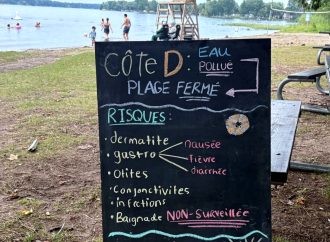 CÔTE D : EAU
POLLUÉ
PLAGE FERMÉ
RISQUES :
• dermatite
• gastro nausée
fièvre
diarrhée
• Otites
• conjonctivites
• infections
• Baignade NON-SURVEILLÉE